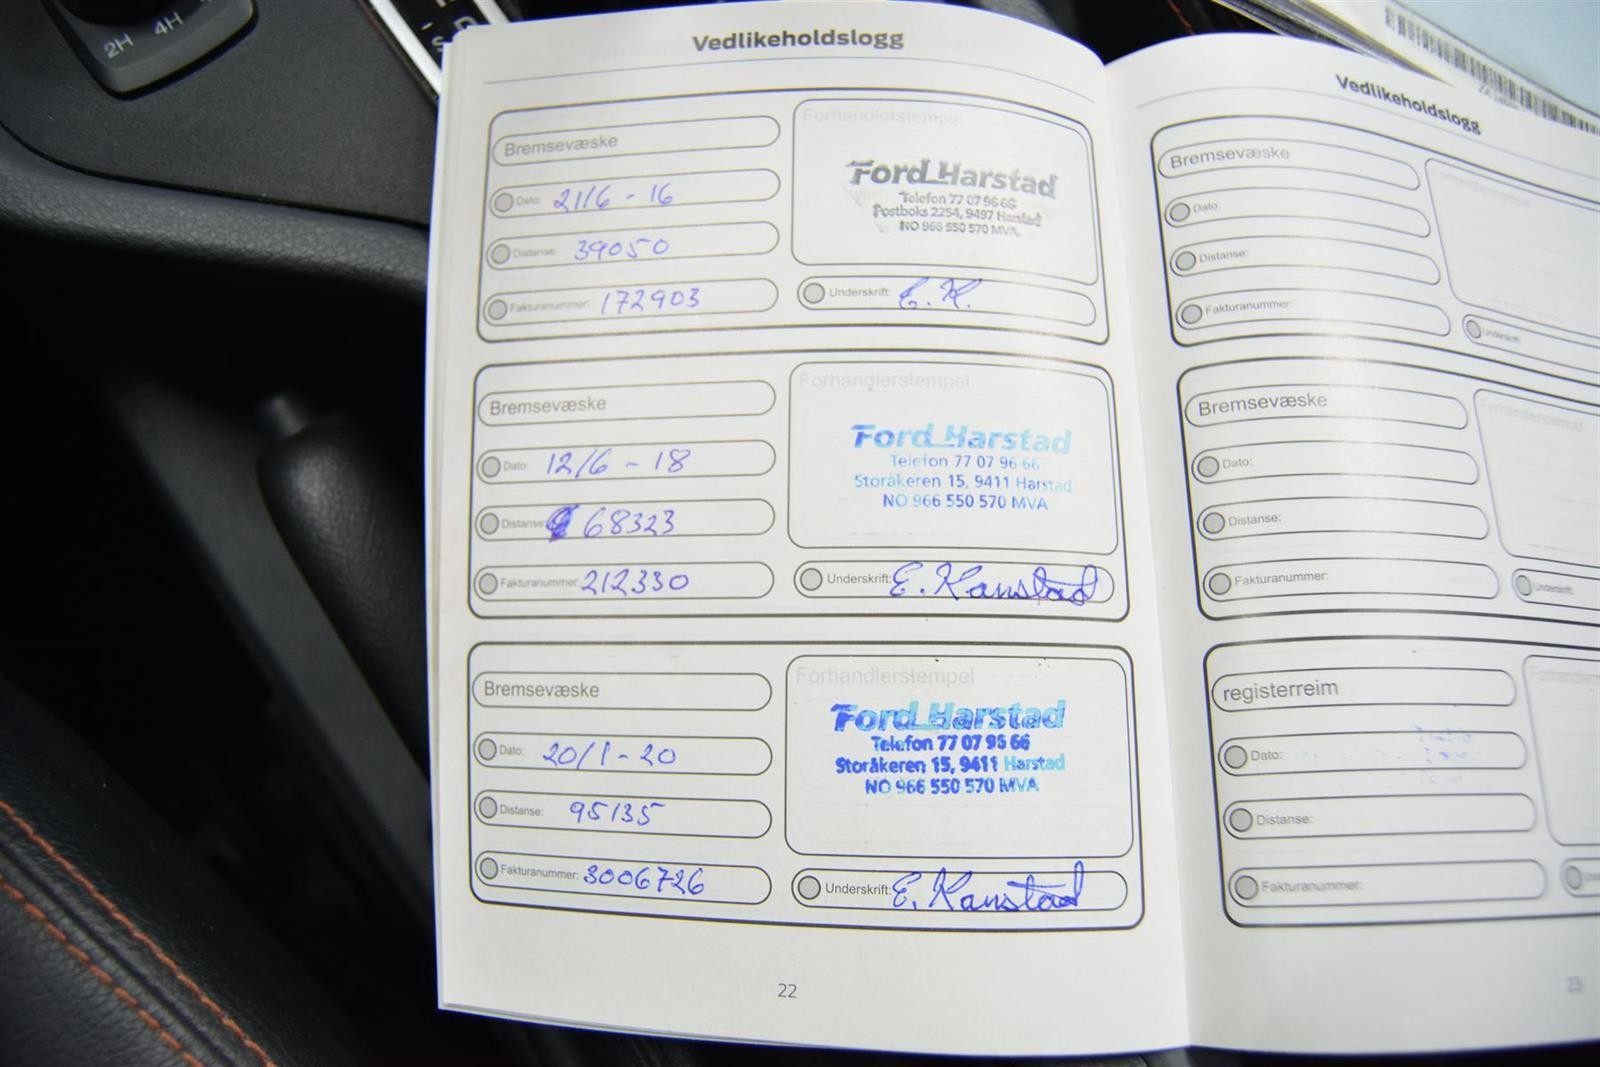 2H 4H
Vedlikeholdslogg
Bremsevæske
Dato: 21/6 - 16
Distanse: 39050
Fakturanummer: 172903
Forhandlerstempel
Ford Harstad
Telefon 77 07 96 66
Postboks 2254, 9497 Harstad
NO 966 550 570 MVA
Underskrift: E. K.
Bremsevæske
Dato: 12/6 - 18
Distanse: 68323
Fakturanummer: 212330
Forhandlerstempel
Ford Harstad
Telefon 77 07 96 66
Storåkeren 15, 9411 Harstad
NO 966 550 570 MVA
Underskrift: E. Kanstad
Bremsevæske
Dato: 20/1 - 20
Distanse: 95135
Fakturanummer: 3006726
Forhandlerstempel
Ford Harstad
Telefon 77 07 96 66
Storåkeren 15, 9411 Harstad
NO 966 550 570 MVA
Underskrift: E. Kanstad
22
Vedlikeholdslogg
Bremsevæske
Dato:
Distanse:
Fakturanummer:
Forhandlerstempel
Underskrift:
Bremsevæske
Dato:
Distanse:
Fakturanummer:
Forhandlerstempel
Underskrift:
registerreim
Dato:
Distanse:
Fakturanummer:
23